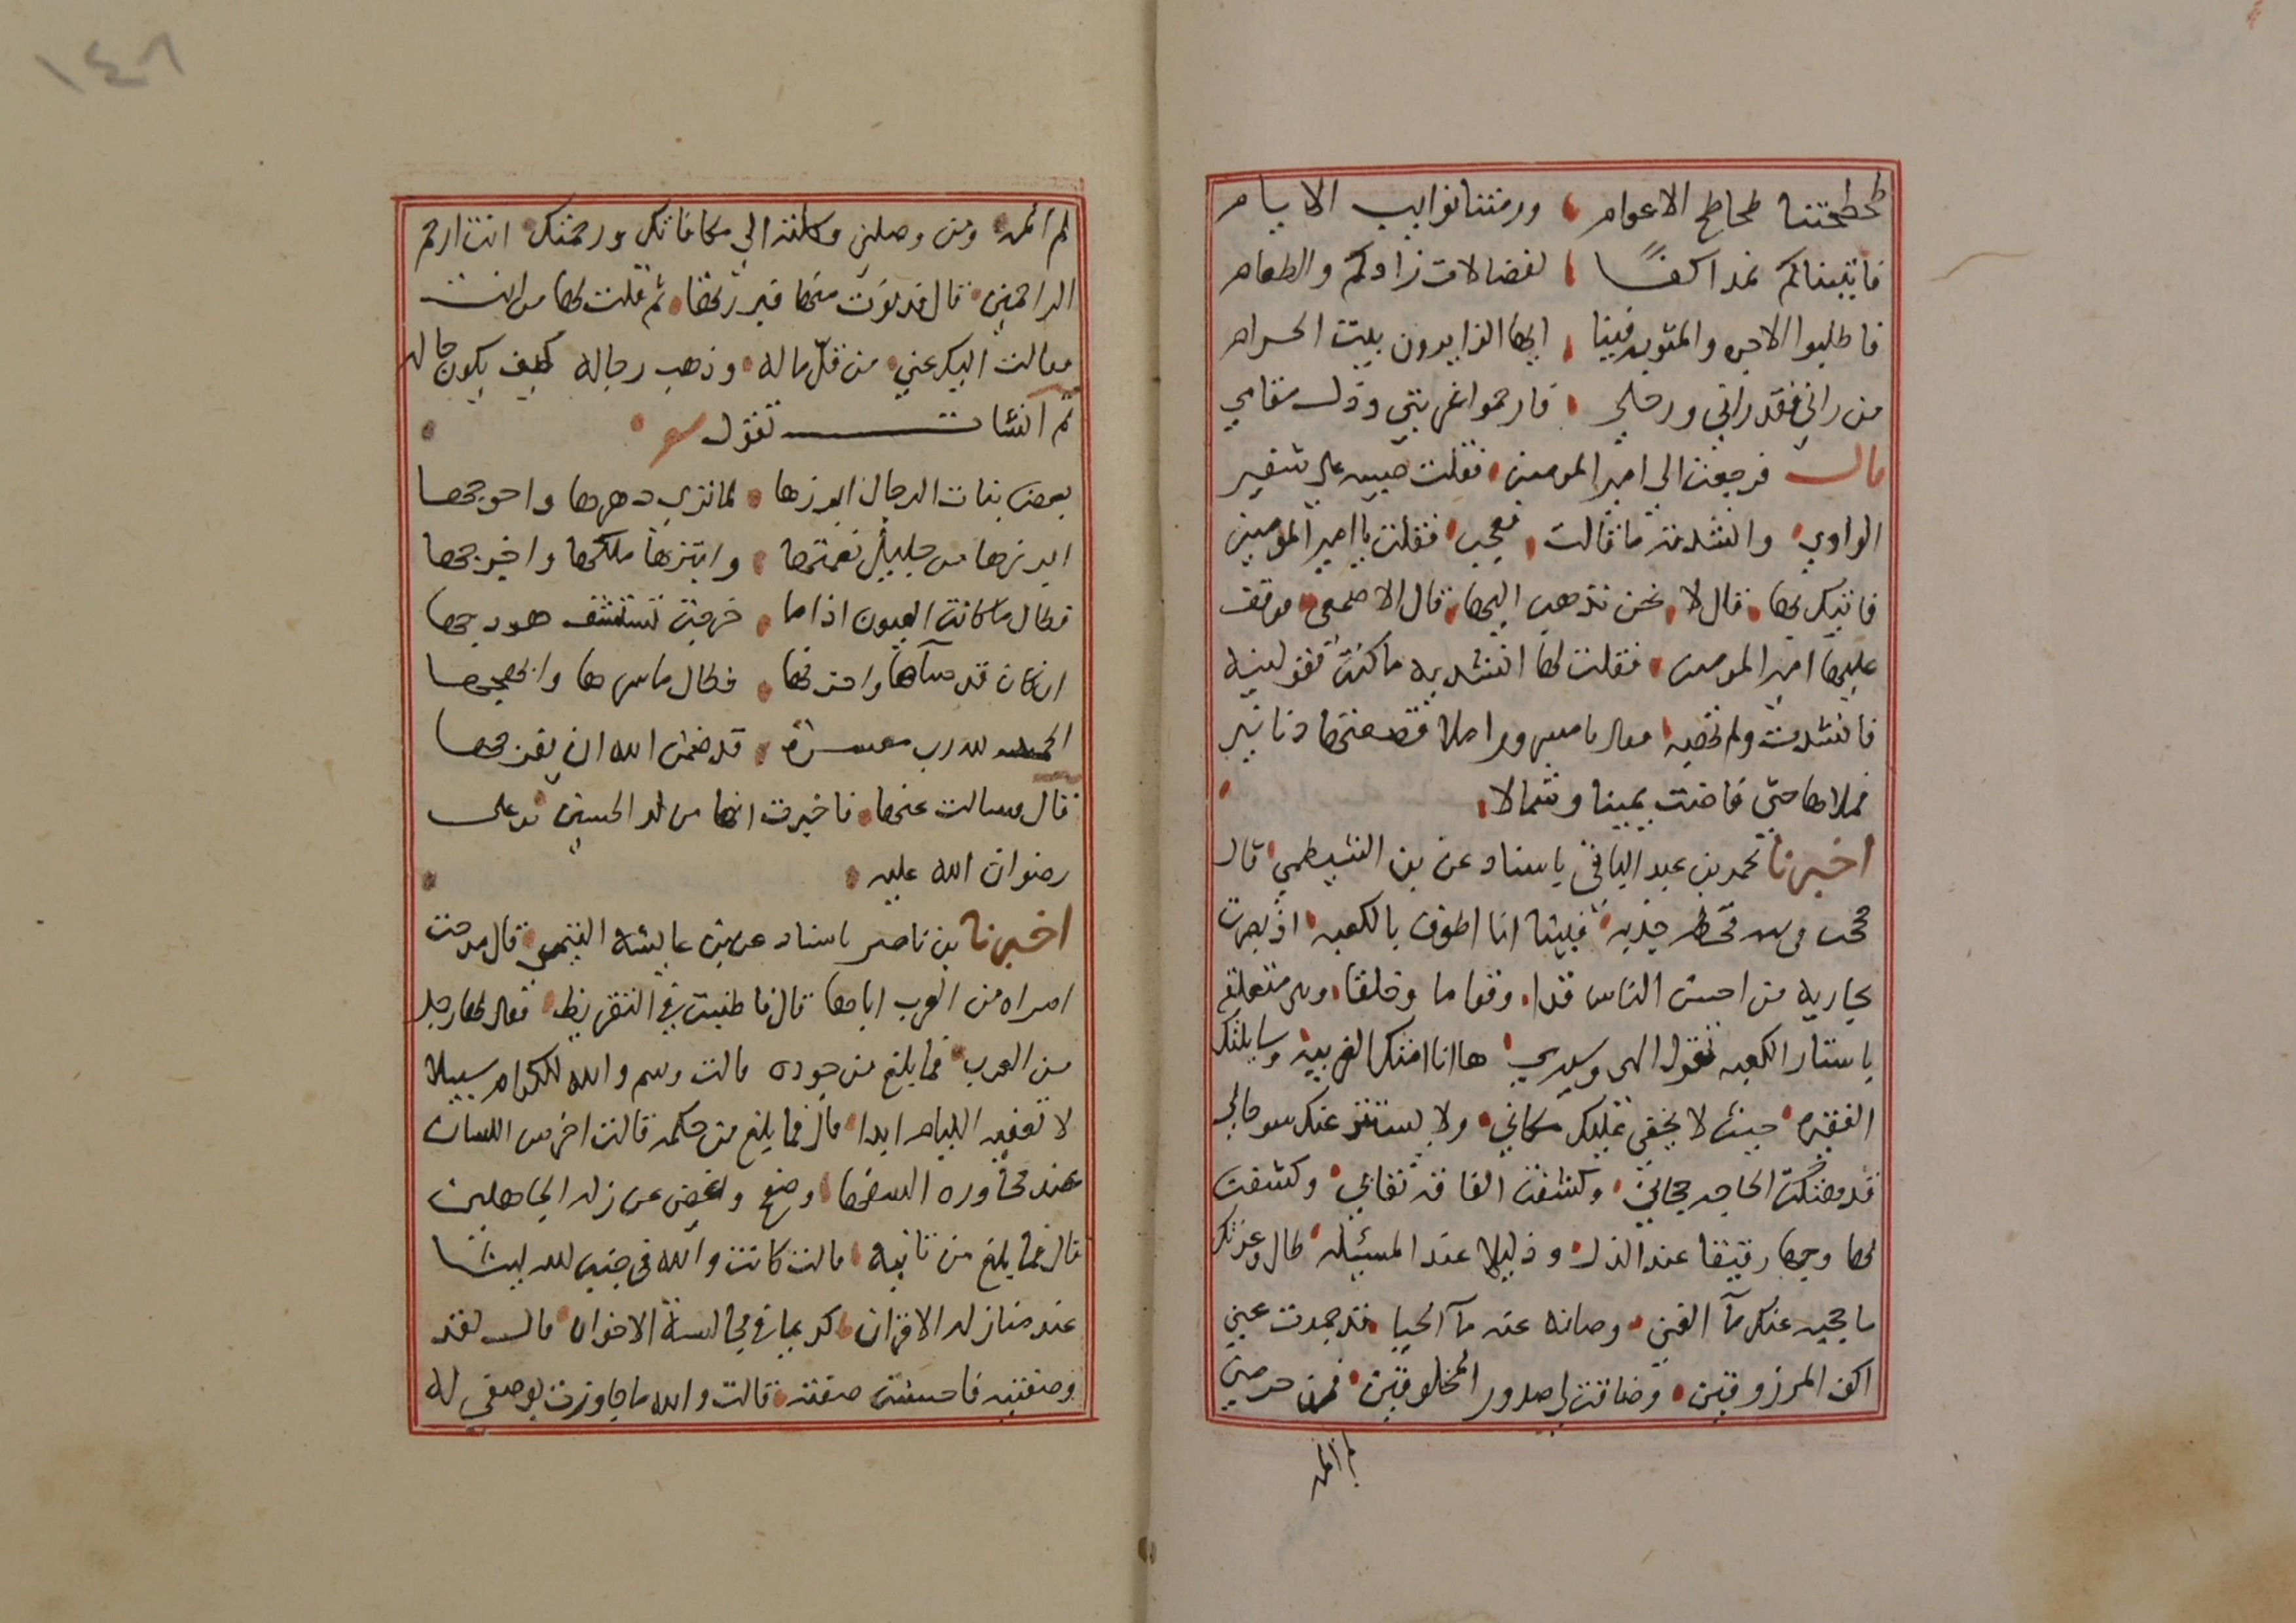 طحطحتنا طحاطح الاعوام ورمتنا نوايب الايام
فاتيناكم نمد اكفا لفضالات زادكم والطعام
فاطلبوا الاجر والمثوبه فينا ايها الزايرون بيت الحرام
من راني فقد راني ورحلي فارحموا غربتي وذل مقامي
قال فرجعت الى امير المومنين فقلت صبيه على شفير
الوادي وانشدته ما قالت فعجب فقلت يا امير المومنين
فاتيك بها قال لا نحن نذهب اليها قال الاصمعي فوقف
عليها امير المومنين فقلت لها انشديه ما كنت تقولينه
فانشدت ولم تهبه فقال يا مسرور املا قصعتها دنانير
فملاها حتى فاضت يمينا وشمالا
اخبرنا محمد بن عبد الباقي باسناد عن بن الشيظمي قال
حججت في سنه قحط جدبه فبينا انا اطوف بالكعبه اذ بصرت
بجاريه من احسن الناس قدا وقواما وخلقا وهي متعلقه
باستار الكعبه تقول الهي وسيدي ها انا امتك الغريبه وسايلتك
الفقيره حيث لا يخفى عليك مكاني ولا يستتر عنك سو حالي
قد هتكت الحاجه حجابي وكشفت الفاقه نقابي وكشفت
لها وجها رقيقا عند الذل وذليلا عند المسئله طال وعزتك
ما حجبه عنك ما الغني وصانه عنه ما الحيا قد جمدت عني
اكف المرزوقين وضاقت بي صدور المخلوقين فمن حرمني
لم المه
١٤٨
لم المه ومن وصلني وكلته الى مكافاتك ورحمتك انت ارحم
الراحمين قال فدنوت منها فبررتها ثم قلت لها من انت
فقالت اليك عني من قل ماله وذهب رجاله كيف يكون حاله
ثم انشات تقول
بعض بنات الرجال ابرزها لما ترى دهرها واحوجها
ابرزها من جليل نعمتها وابتزها ملكها واخرجها
فطال ما كانت العيون اذا ما خرجت تستشف هودجها
ان كان قد ساها واحزنها فطال ما سرها وابهجها
الحمد لله رب معسرة قد ضمن الله ان يفرجها
قال فسالت عنها فاخبرت انها من ولد الحسين بن على
رضوان الله عليه
اخبرنا بن ناصر باسناد عن بن عايشه التيمي قال مدحت
امراه من العرب اباها قال فاطنبت في التقريظ فقال لها رجل
من العرب فما بلغ من جوده قالت رسم والله للكرام سبيلا
لا تعفيه الليام ابدا قال فما بلغ من حكمه قالت اخرس اللسان
عند محاوره السفها وضح واغض عن زلة الجاهلين
قال فما بلغ من ثانيه قالت كانت والله في جنبه لله ليثا
عند منازله الاقران كريما في مجالسة الاخوان قال لقد
وصفتيه فاحسنت صفته قالت والله ما جاوزت بوصفي له